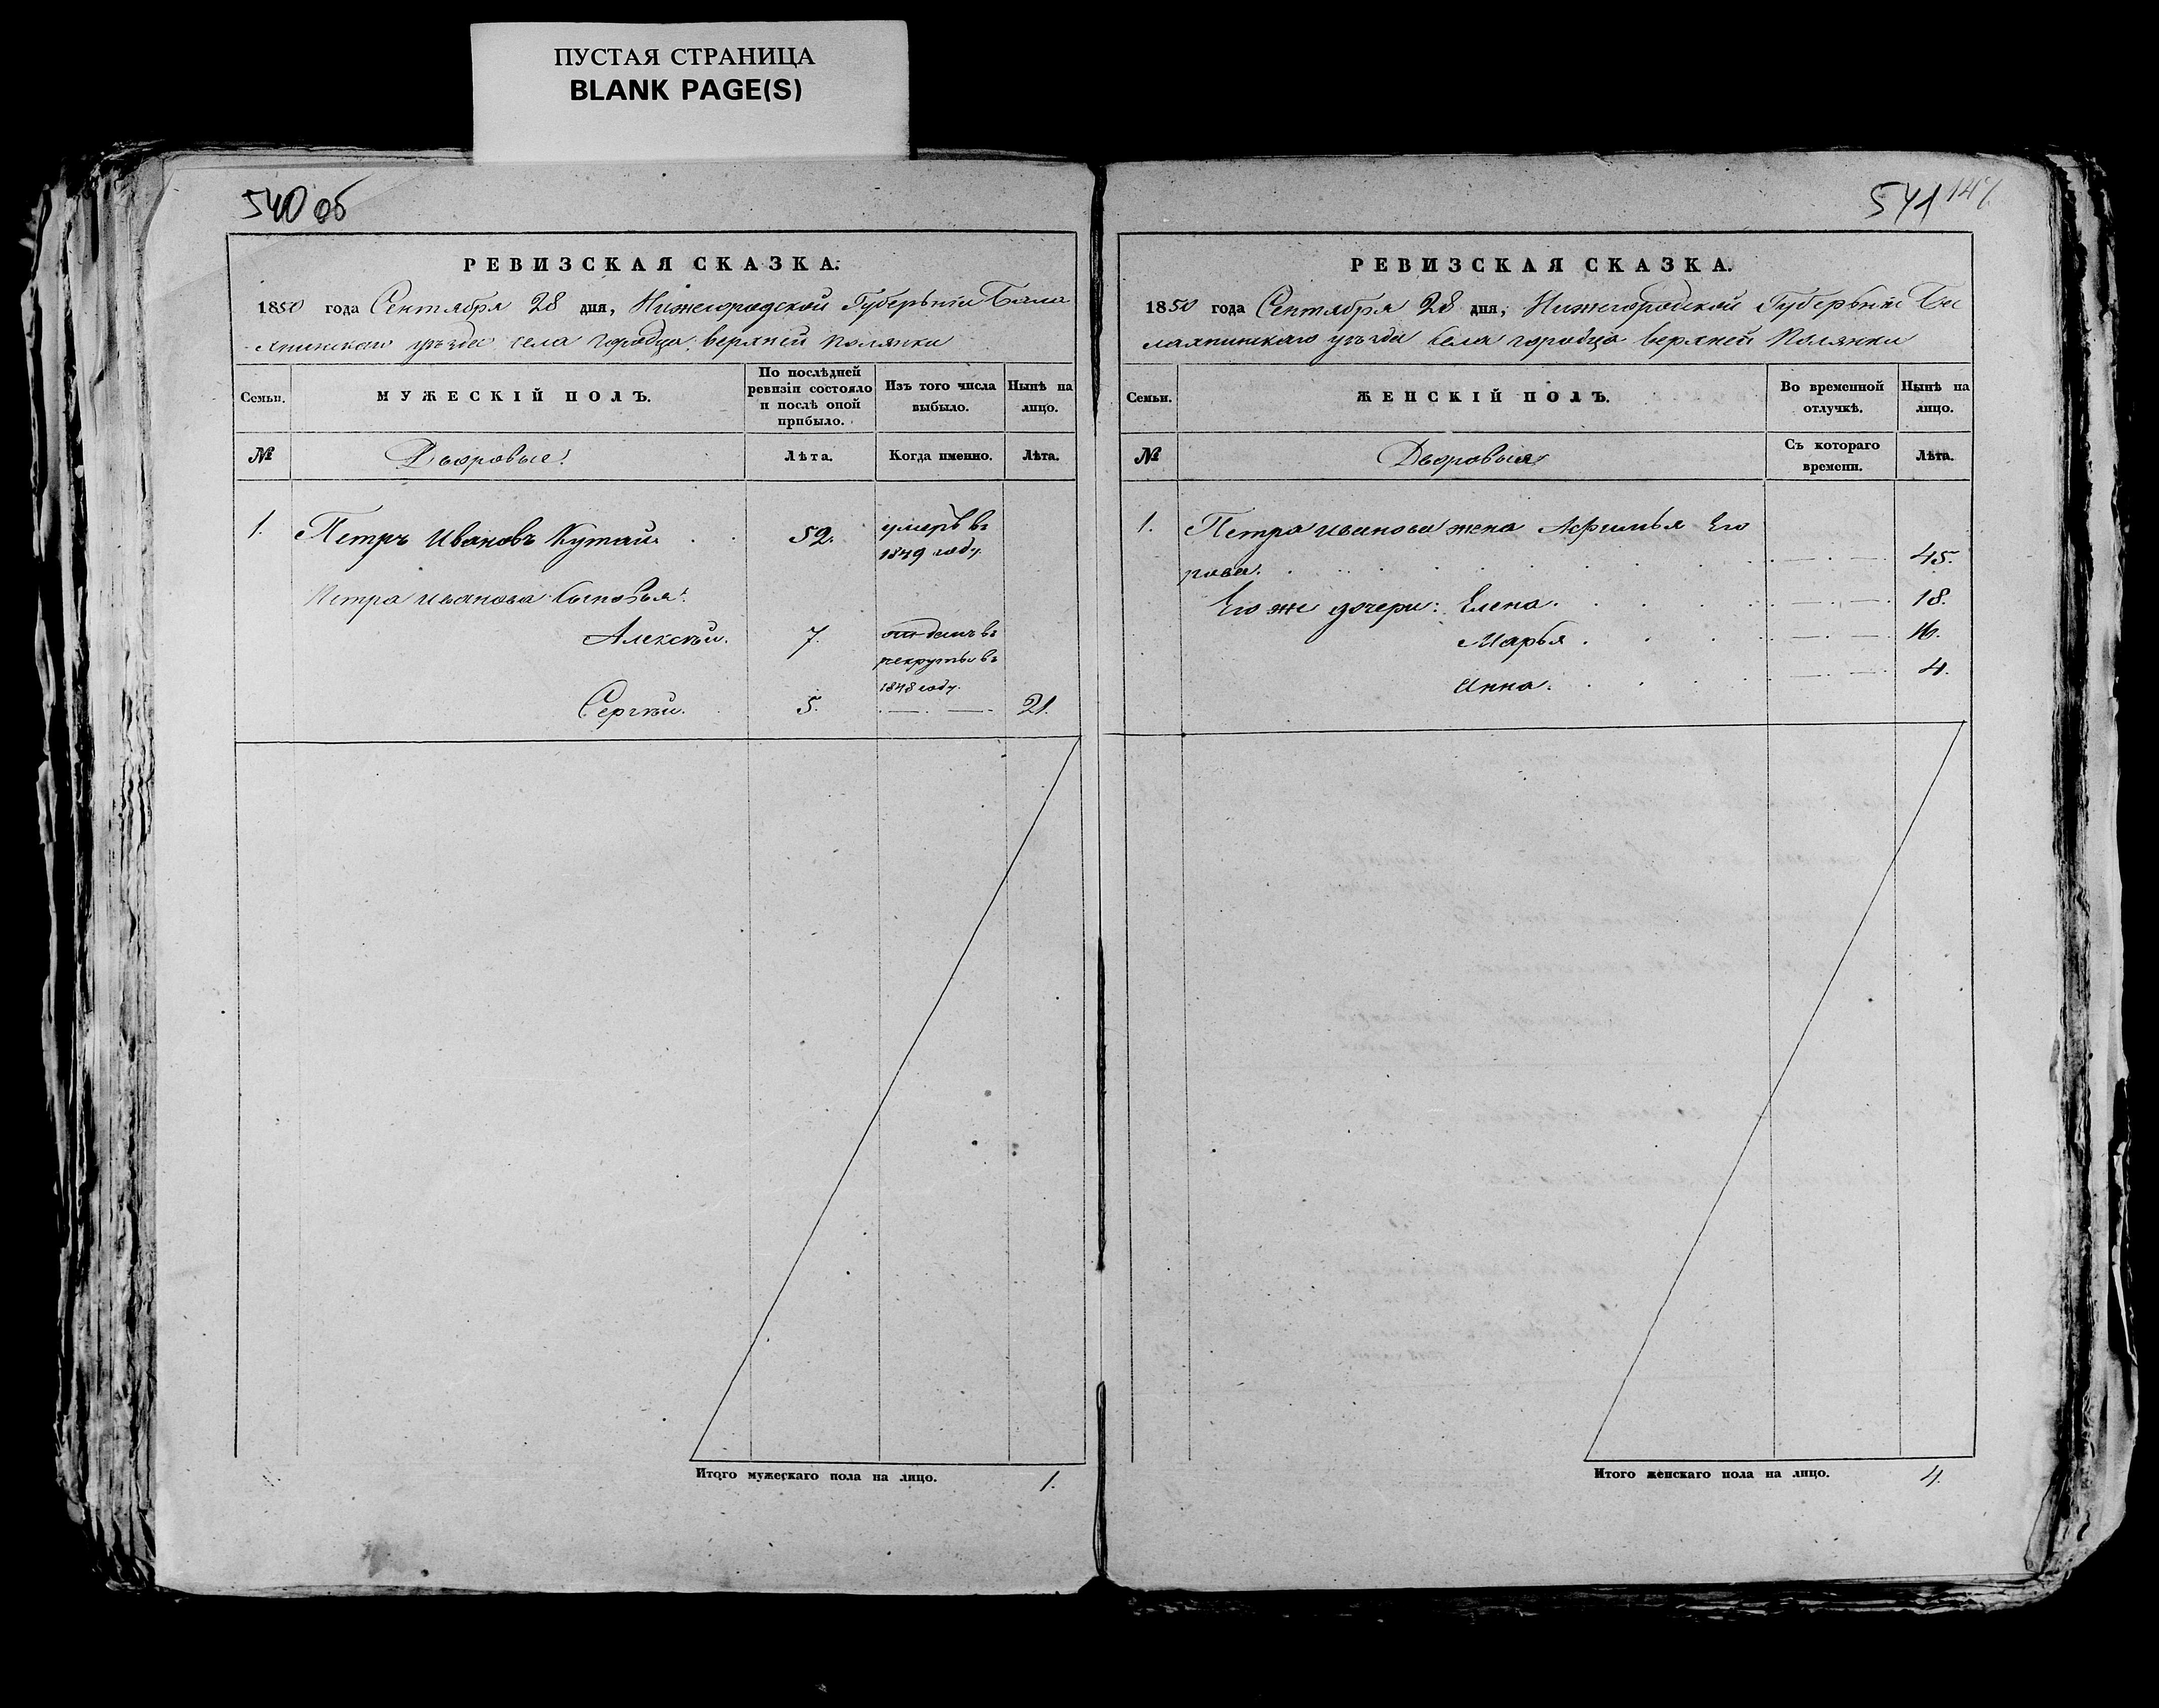 ПУСТАЯ СТРАНИЦА
BLANK PAGE(S)
540 об
РЕВИЗСКАЯ СКАЗКА.
1850 года Сентября 28 дня, Нижегородской Губерьніи Бала
хнинскаго уѣзда села городца верхней Полянки
Семьи.
МУЖЕСКІЙ ПОЛЪ.
По послѣдней ревизіи состояло и послѣ оной прибыло.
Изъ того числа выбыло.
Нынѣ на лицо.
№
Дворовые:
Лѣта.
Когда именно.
Лѣта.
1. Петръ Ивановъ 52. умеръ въ
1849 году.
Петра Иванова Сыновья:
Алексѣй. 7. отданъ въ
рекруты въ
1848 году.
Сергѣй. 5. 21.
Итого мужескаго пола на лицо. 1.
541 147
РЕВИЗСКАЯ СКАЗКА.
1850 года Сентября 28 дня, Нижегородской Губерьніи Ба
лахнинскаго уѣзда села городца верхней Полянки
Семьи.
ЖЕНСКІЙ ПОЛЪ.
Во временной отлучкѣ.
Нынѣ на лицо.
№
Дворовыя
Съ котораго времени.
Лѣта.
1. Петра Иванова жена Афимья Его
рова. 45.
Его же дочери: Елена. 18.
Марья. 16.
Анна. 4.
Итого женскаго пола на лицо. 4.